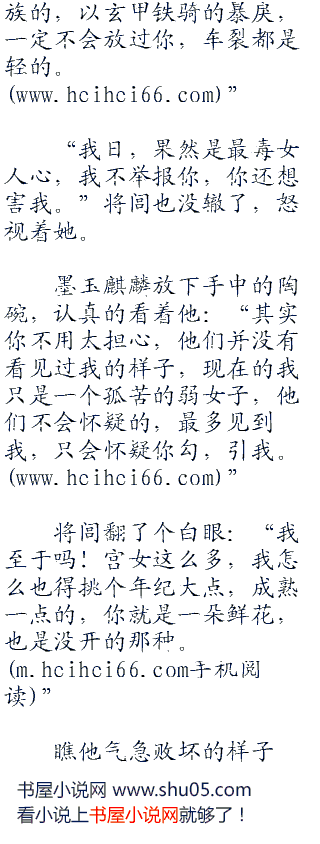 族的，以玄甲铁骑的暴戾，
一定不会放过你，车裂都是
轻的。
(www.hcihci66.com)”
“我日，果然是最毒女
人心，我不举报你，你还想
害我。”将闾也没辙了，怒
视着她。
墨玉麒麟放下手中的陶
碗，认真的看着他：“其实
你不用太担心，他们并没有
看见过我的样子，现在的我
只是一个孤苦的弱女子，他
们不会怀疑的，最多见到
我，只会怀疑你勾，引我。
(www.hcihci66.com)”
将闾翻了个白眼：“我
至于吗！宫女这么多，我怎
么也得挑个年纪大点，成熟
一点的，你就是一朵鲜花，
也是没开的那种。
(m.hcihci66.com手机阅
读)”
瞧他气急败坏的样子
书屋小说网 www.shu05.com
看小说上书屋小说网就够了！